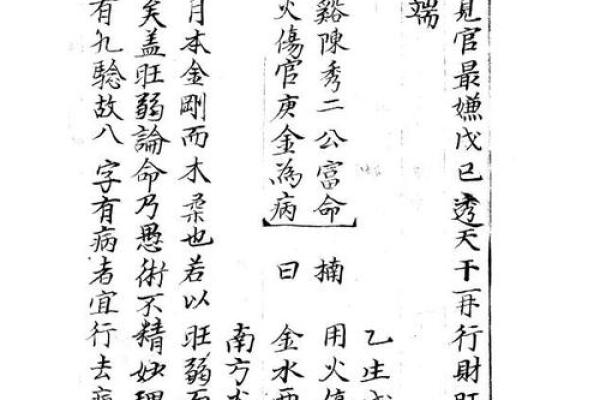 見官最嫌戊己透天干一再行財旺
端
乙生戊
谿陳秀二公富命 楠 用火傷
火傷官庚金為病 曰 金水西
南方火
月本金剛而木柔也若以旺弱而
矣蓋旺弱論命乃愚術不精妙理
有九驗故八字有病者宜行去病